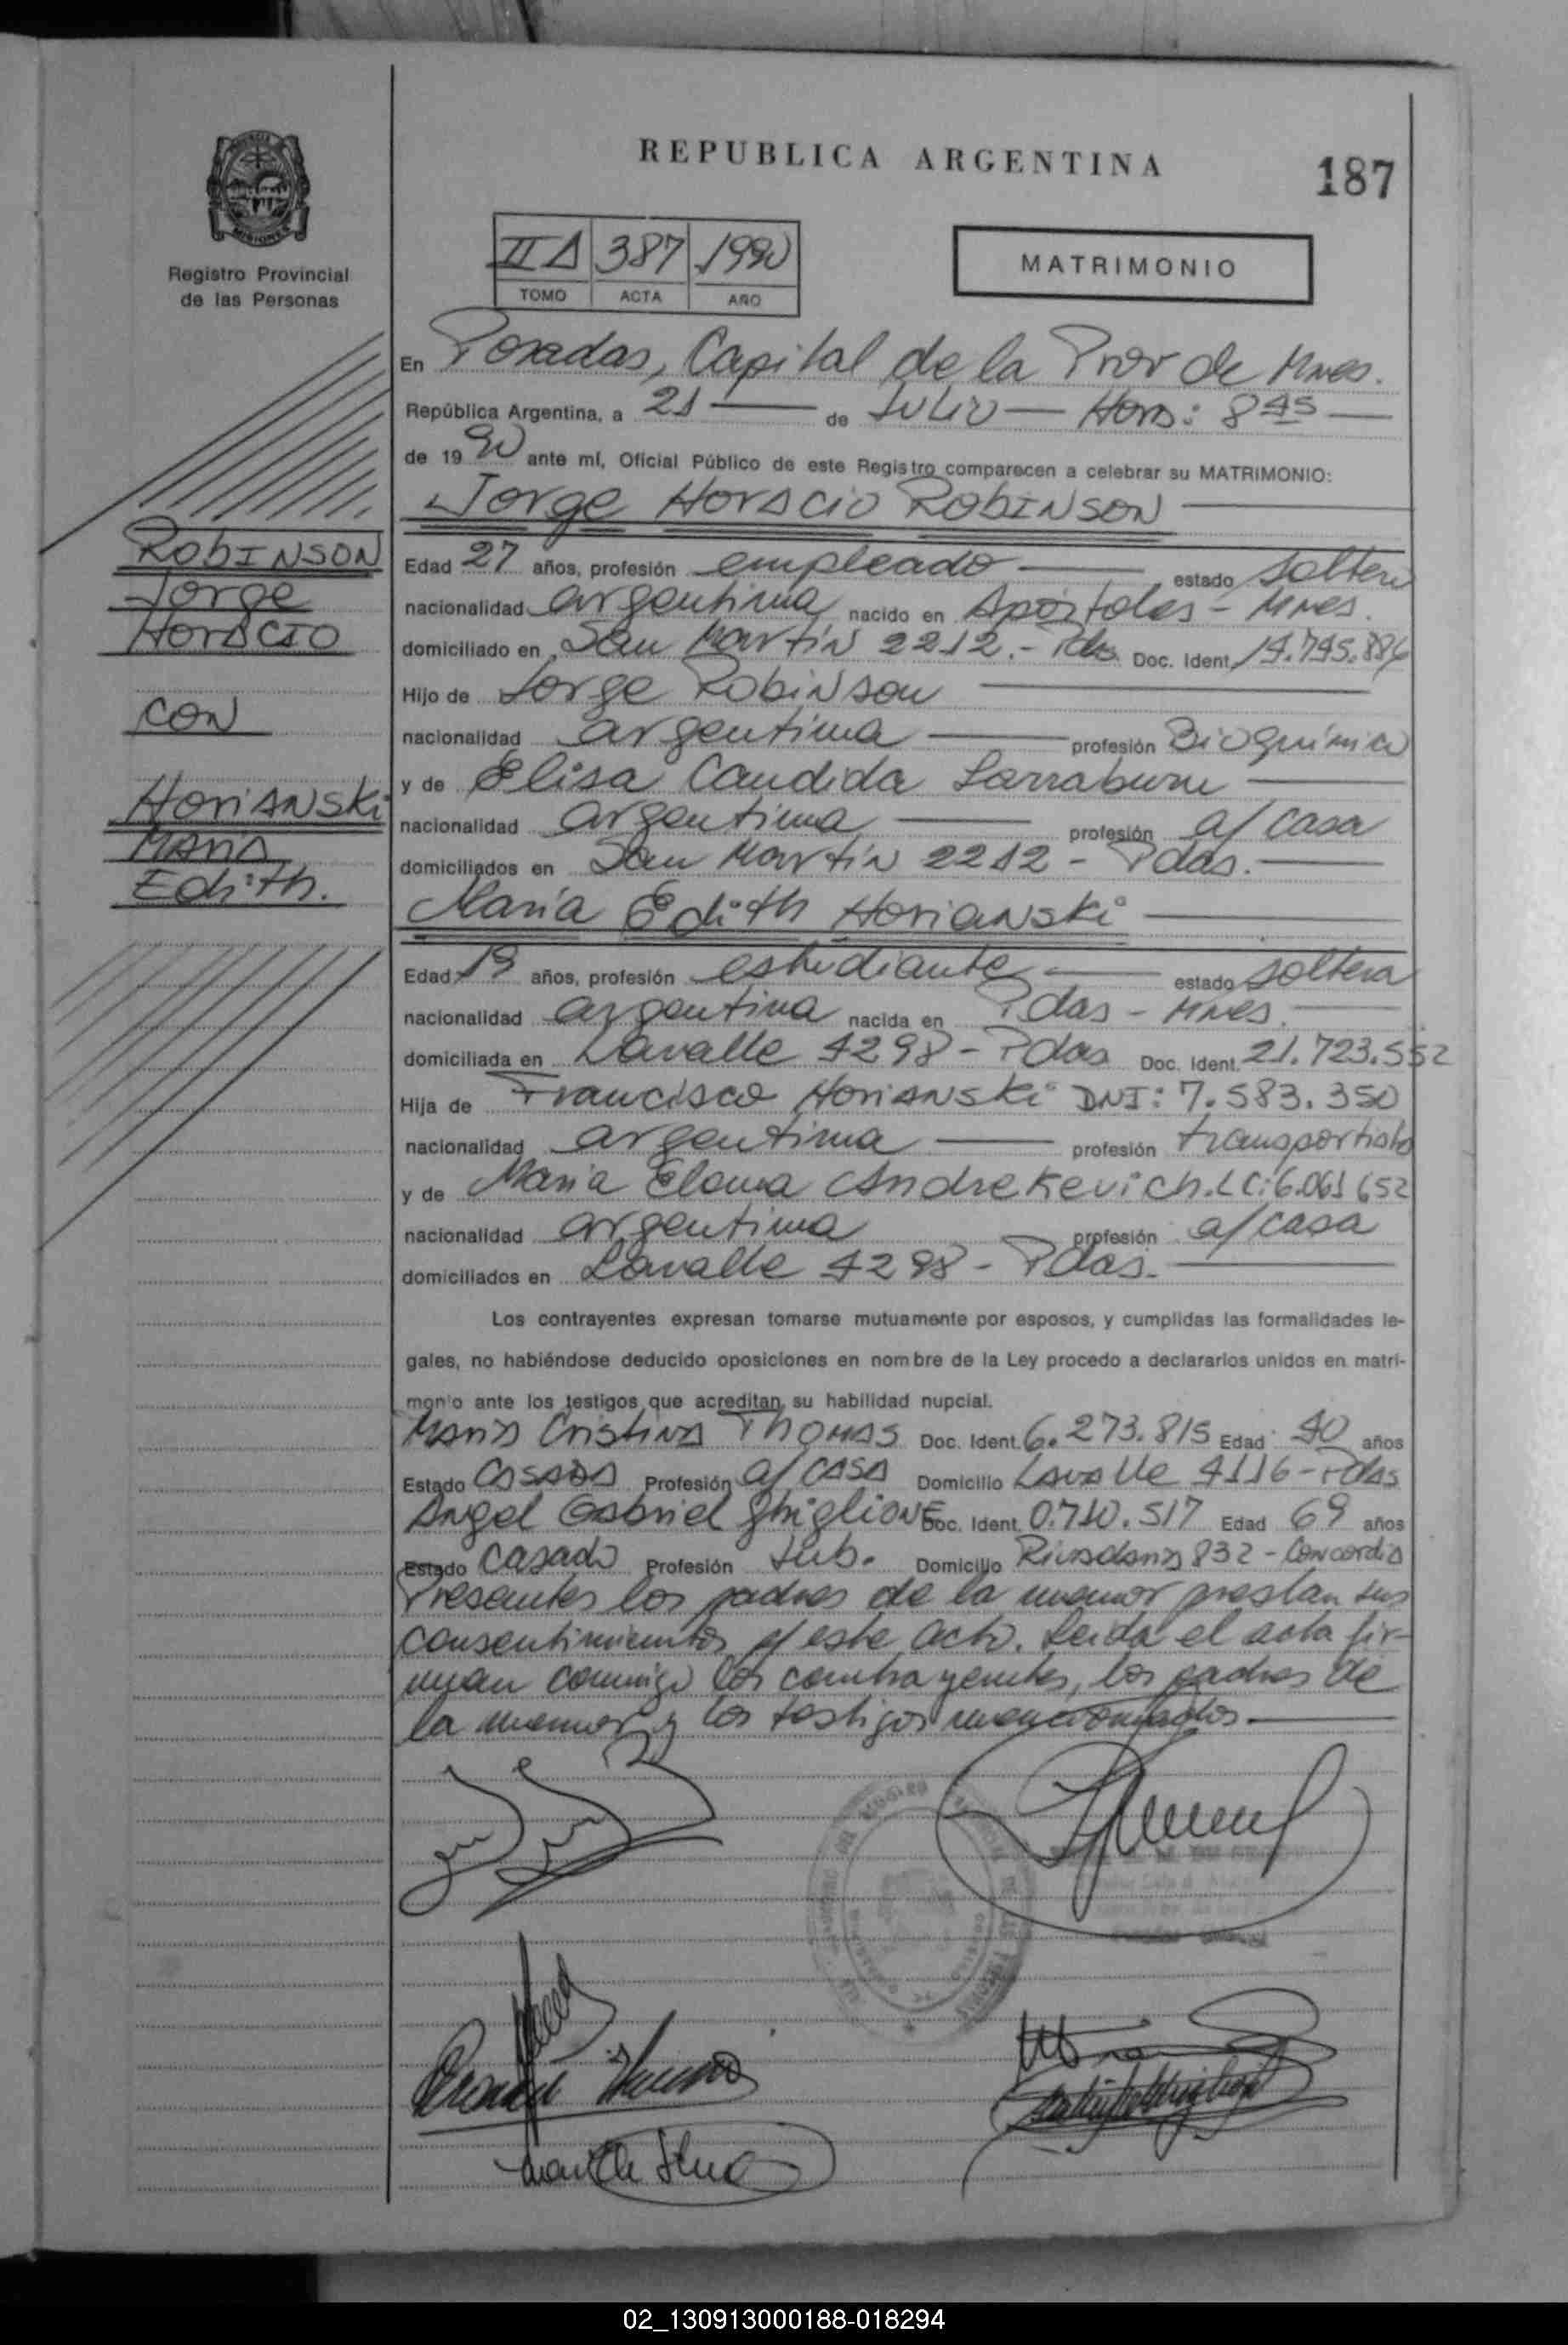 REPUBLICA ARGENTINA
187
MISIONES
Registro Provincial
de las Personas
II A 387 1990
TOMO ACTA AÑO
MATRIMONIO
En Posadas, Capital de la Prov de Mnes.
República Argentina, a 21 de Julio Hora: 8 45
de 1990 ante mí, Oficial Público de este Registro comparecen a celebrar su MATRIMONIO:
Jorge Horacio Robinson
Robinson
Jorge
Horacio
con
Horianski
María
Edith.
Edad 27 años, profesión empleado estado soltero
nacionalidad argentina nacido en Apóstoles - Mnes.
domiciliado en San Martín 2212.- Pdas. Doc. Ident.
Hijo de Jorge Robinson
nacionalidad argentina profesión Bioquímico
y de Elisa Candida Larraburu
nacionalidad argentina profesión a/ casa
domiciliados en San Martín 2212 - Pdas.
María Edith Horianski
Edad 19 años, profesión estudiante estado soltera
nacionalidad argentina nacida en Pdas - Mnes.
domiciliada en Lavalle 4298 - Pdas Doc. Ident. 21.723.552
Hija de Francisco Horianski DNI: 7.583.350
nacionalidad argentina profesión transportista
y de María Elena Andrekevich. LC: 6.061 652
nacionalidad argentina profesión a/ casa
domiciliados en Lavalle 4298 - Pdas.
Los contrayentes expresan tomarse mutuamente por esposos, y cumplidas las formalidades le-
gales, no habiéndose deducido oposiciones en nombre de la Ley procedo a declararlos unidos en matri-
monio ante los testigos que acreditan su habilidad nupcial.
María Cristina Thomas Doc. Ident. 6.273.815 Edad 40 años
Estado casada Profesión a/ casa Domicilio Lavalle 4116 - Pdas
Angel Gabriel Ghiglione Doc. Ident. 0.710.517 Edad 69 años
Estado casado Profesión Jub. Domicilio Rivadavia 832 - Concordia
Presentes los padres de la menor prestan sus
consentimientos p/ este acto. Leída el acta fir-
man conmigo los contrayentes, los padres de
la menor y los testigos mencionados.
02_130913000188-018294